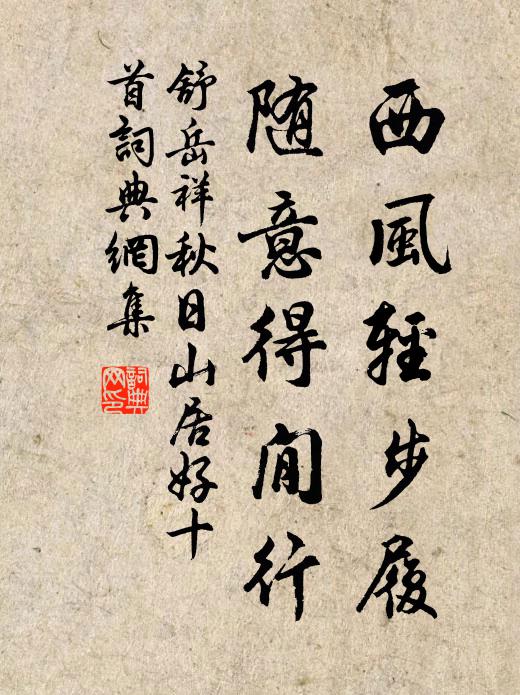 西風輕步履
随意得閒行
舒岳祥秋日山居好十
首詞典網集
詞典
网印